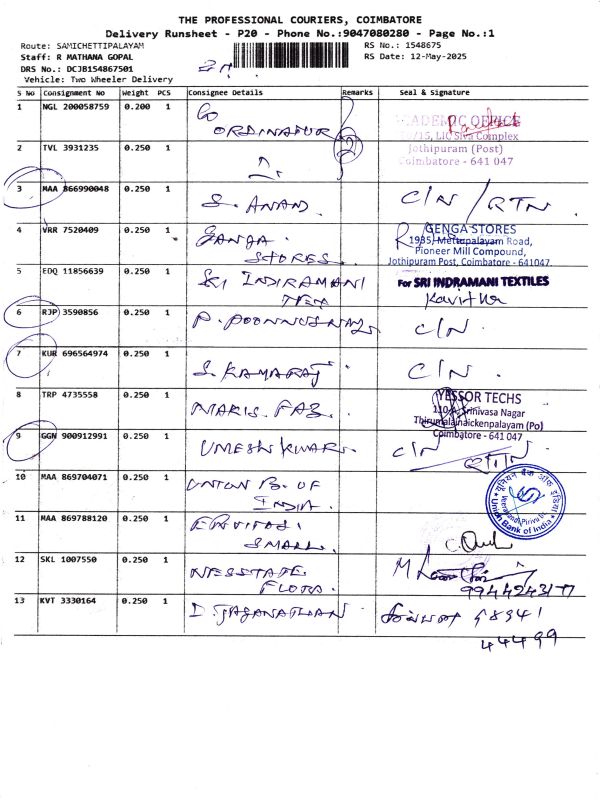 THE PROFESSIONAL COURIERS, COIMBATORE
Delivery Runsheet - P20 - Phone No.:9047080280 - Page No.:1
Route: SAMICHETTIPALAYAM
RS No.: 1548675
Staff: R MATHANA GOPAL
RS Date: 12-May-2025
DRS No.: DCJB154867501
Vehicle: Two Wheeler Delivery
S No Consignment No Weight PCS Consignee Details Remarks Seal & Signature
1 NGL 200058759 0.200 1 Co
ORDINATOR
ACADEMIC OFFICE
LIC Siva Complex
2 TVL 3931235 0.250 1
Jothipuram (Post)
Coimbatore - 641 047
3 MAA 866990048 0.250 1 S. ANAND. C/N / RTN.
4 VRR 7520409 0.250 1 GANGA.
STORES.
GENGA STORES
1935, Mettupalayam Road,
Pioneer Mill Compound,
Jothipuram Post, Coimbatore - 641047.
5 EDQ 11856639 0.250 1 SRI INDIRAMANI
TEX
For SRI INDRAMANI TEXTILES
Kavitha
6 RJP 3590856 0.250 1 C/N.
7 KUR 696564974 0.250 1 S. KAMARAJ C/N.
8 TRP 4735558 0.250 1 MARIS. FAB.
YESSOR TECHS
110-A, Srinivasa Nagar
Thirumalainaickenpalayam (Po)
Coimbatore - 641 047
9 GGN 900912991 0.250 1 UMESH KUMAR. C/N
RTN
10 MAA 869704071 0.250 1 UNION B. OF
INDIA.
यूनियन बैंक ऑफ इंडिया
Union Bank of India
11 MAA 869788120 0.250 1
SMALL.
12 SKL 1007550 0.250 1
FLORA.
M
9944243177
13 KVT 3330164 0.250 1 D. JAGANATHAN
98941
44499